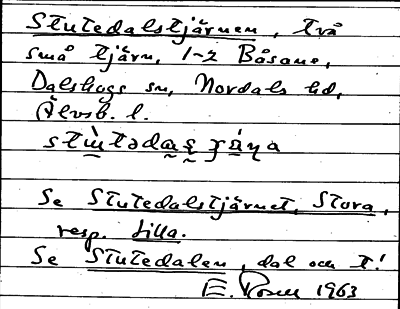 Stutedalstjärnen, två
små tjärn, 1-2 Båsane,
Dalskogs sn, Nordals hd,
Älvsb. l.
Se Stutedalstjärnet, Stora,
resp. Lilla.
Se Stutedalen, dal och t!
E. Rosen 1963